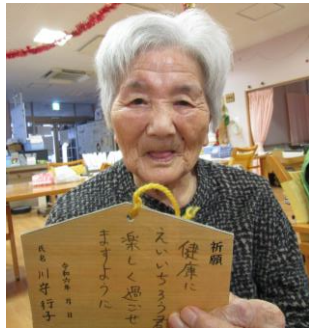 祈願
健康に
えいいちろう君
楽しく過ごせ
ますように
令和六年 月 日
氏名 川守 行子